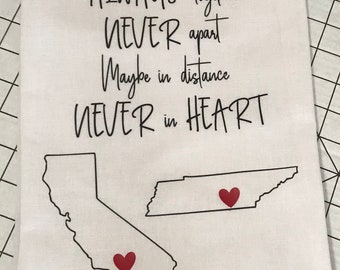 NEVER apart
Maybe in distance
NEVER in HEART